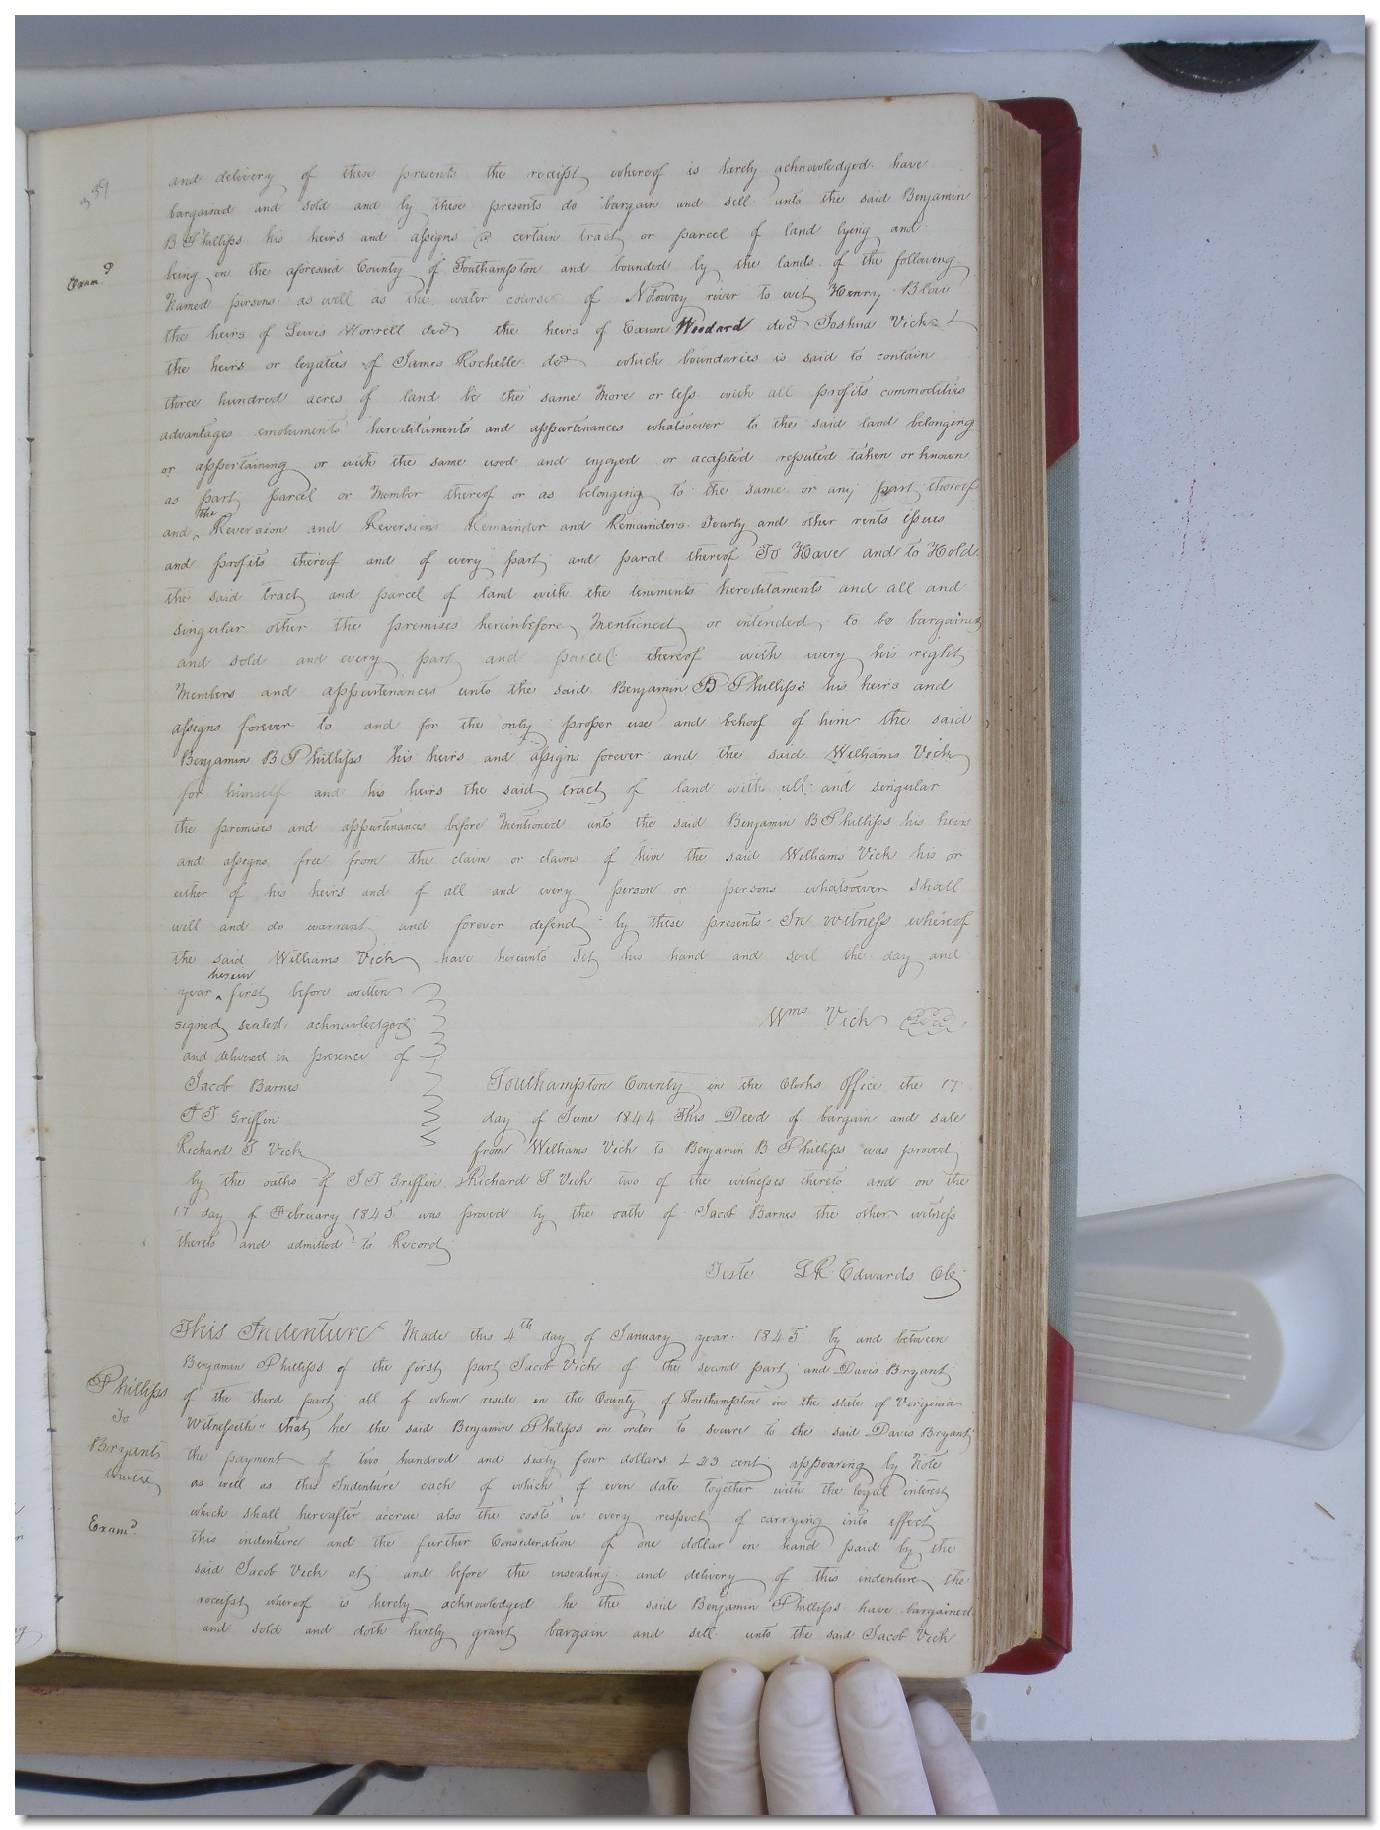 and delivery of these presents the receipt whereof is hereby acknowledged have
bargained and sold and by these presents do bargain and sell unto the said Benjamin
B Phillips his heirs and assigns a certain tract or parcel of land lying and
Exam.d
being in the aforesaid County of Southampton and bounded by the lands of the following
Named persons as well as the water course of Notoway river to wit Henry Blow
the heirs of Lewis Worrell decd the heirs of Exum Woodard decd Joshua Vick &
the heirs or legatees of James Rochelle decd which boundaries is said to contain
three hundred acres of land be the same More or less with all profits commodities
advantages emoluments hereditaments and appurtenances whatsoever to the said land belonging
or appertaining or with the same used and enjoyed or accepted reputed taken or known
as part parcel or Member thereof or as belonging to the same or any part thereof
and the Reversion and Reversions Remainder and Remainders Yearly and other rents issues
and profits thereof and of every part and parcel thereof To Have and to Hold
the said tract and parcel of land with the tenements hereditaments and all and
singular other the premises hereinbefore Mentioned or intended to be bargained
and sold and every part and parcel thereof with every his right
Members and appurtenances unto the said Benjamin B Phillips his heirs and
assigns forever to and for the only proper use and behoof of him the said
Benjamin B Phillips his heirs and assigns forever and the said Williams Vick
for himself and his heirs the said tract of land with all and singular
the premises and appurtenances before Mentioned unto the said Benjamin B Phillips his heirs
and assigns free from the claim or claims of him the said Williams Vick his or
either of his heirs and of all and every person or persons whatsoever shall
will and do warrant and forever defend by these presents In witness whereof
the said Williams Vick have hereunto set his hand and seal the day and
year herein first before written
signed sealed acknowledged
Wms Vick
and delivered in presence of
Jacob Barnes
Southampton County in the Clerks Office the 17
J T Griffin
day of June 1844 This Deed of bargain and sale
Richard T Vick
from Williams Vick to Benjamin B Phillips was proved
by the oaths of J T Griffin & Richard T Vick two of the witnesses thereto and on the
17 day of February 1845 was proved by the oath of Jacob Barnes the other witness
thereto and admitted to Record
Teste L R Edwards Clk
This Indenture Made this 4th day of January year 1845 by and between
Benjamin Phillips of the first part Jacob Vick of the second part and Davis Bryant
Phillips
To
Bryants
of the third part all of whom reside in the County of Southampton in the state of Virginia
Witnesseth" that he the said Benjamin Phillips in order to secure to the said Davis Bryant
the payment of two hundred and sixty four dollars & 23 cent appearing by Note
as well as this Indenture each of which of even date together with the legal interest
which shall hereafter accrue also the costs in every respect of carrying into effect
Exam.d
this indenture and the further Consideration of one dollar in hand paid by the
said Jacob Vick at and before the unsealing and delivery of this indenture the
receipt whereof is hereby acknowledged he the said Benjamin Phillips have bargained
and sold and doth hereby grant bargain and sell unto the said Jacob Vick